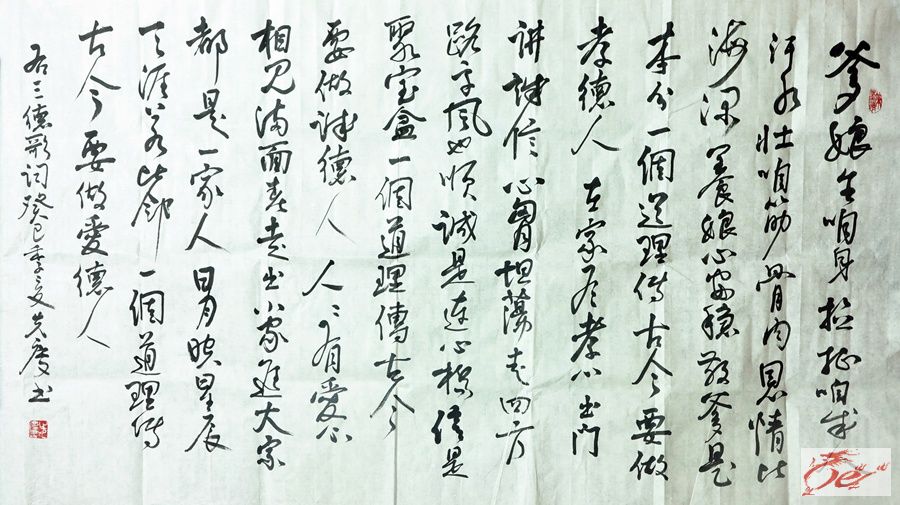 爹娘生咱身拉扯咱成
汗水壮咱筋骨肉恩情比
海深养娘心安稳敬爹是
本分一個道理傳古今要做
孝德人 在家有孝心出門
讲诚信心胸坦荡走四方
路风也顺诚是连心桥信是
聚宝盆一個道理傳古今
要做诚德人 人々有愛心
相见满面春走出小家進大家
都是一家人日月映星辰
天涯若比邻一個道理傳
古今要做愛德人
右三德歌词癸巳季夏书